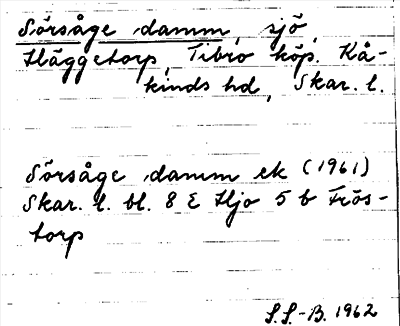 Sörsåge damm, sjö,
Häggetorp, Tibro köp. Kå-
kinds hd, Skar. l.
Sörsåge damm ek (1961)
Skar. l. bl. 8 E Hjo 5 b Frös-
torp
S.S.-B. 1962